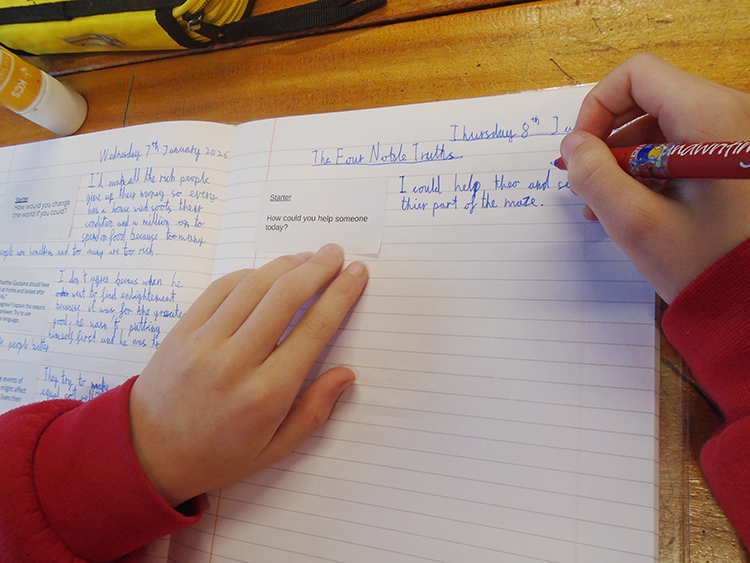 KCS
Wednesday 7th January 2026
Starter
How would you change
the world if you could?
I'd make all the rich people
give up their money so every
has a house with
condition and a million on to
spend on food because too many
people are homeless and too many are too rich.
Siddhartha Gautama should have
at home and looked after
I don't agree because when he
went to find enlightenment
because it was for the greater
good, he wasn't putting
himself first and he was
people better
events of
might affect
lives their
They try to make
Thursday 8th Ja
The Four Noble Truths
Starter
How could you help someone
today?
I could help theo and
thier part of the maze.
Handwriting